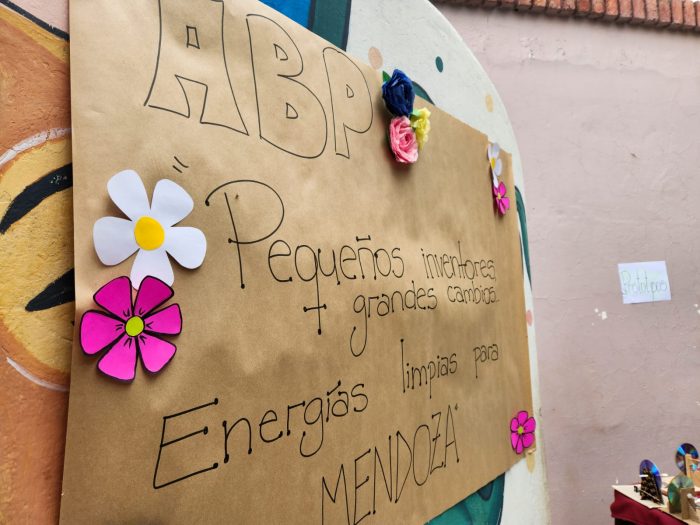 ABP
"Pequeños inventores,
+ grandes cambios...
Energías limpias para
MENDOZA"
Prototipos